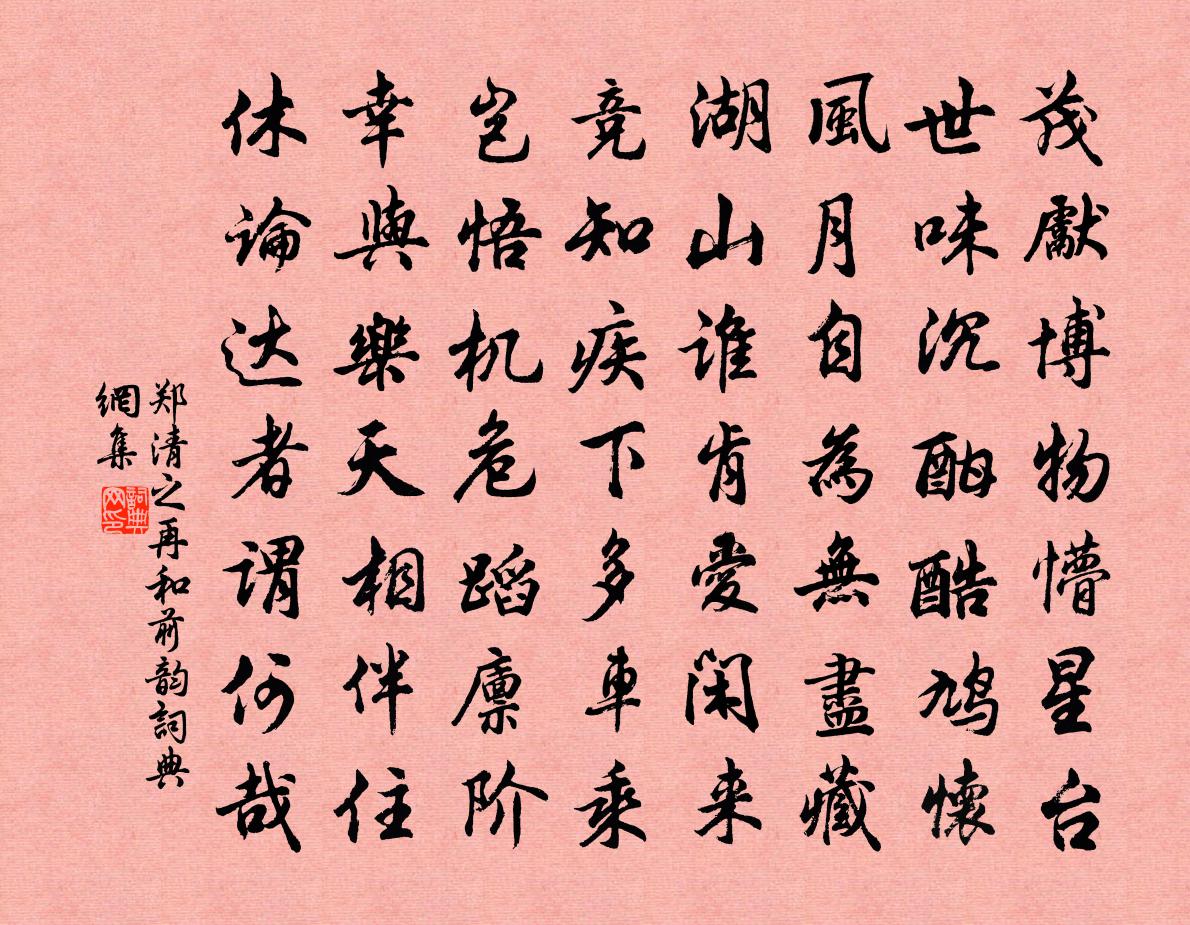 茂獻博物懵星台
世味沉酣酷鸩懷
風月自為無盡藏
湖山谁肯愛闲来
竞知疾下多車乘
岂悟机危蹈廪阶
幸與樂天相伴住
休論达者谓何哉
郑清之再和前韵詞典
網集
詞典
网印